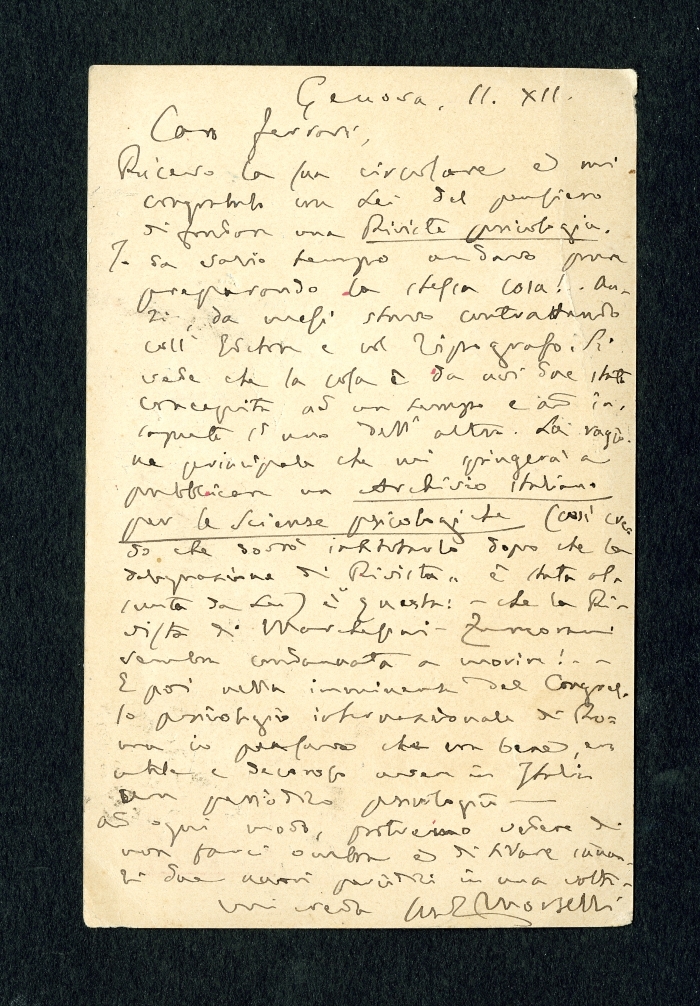 Genova, 11. XII.
Caro Ferrari,
Ricevo la sua circolare e mi
congratulo con Lei del pensiero
di fondare una Rivista psicologica.
Io da vario tempo andavo pure
preparando la stessa cosa! An-
zi, da mesi stavo contrattando
coll' Editore e col Tipografo. Si
vede che la cosa è da noi due stata
concepita ad un tempo e ad in-
saputa l'uno dell' altro. La ragio-
ne principale che mi spingeva a
pubblicare un Archivio italiano
per le Scienze psicologiche (così cre-
do che dovrò intitolarlo dopo che la
designazione di "Rivista" è stata as-
sunta da Lei) è questa: - che la Ri-
vista di Marchesini - Zamorani
sembra condannata a morire! - -
E poi nella imminenza del Congres-
so psicologico internazionale di Ro-
ma io pensavo che era bene, era
utile e decoroso avere in Italia
un periodico psicologico —
Ad ogni modo, potremo vedere di
non farci ombra e di tirare innan-
zi due nuovi periodici in una volta -
mi creda Morselli